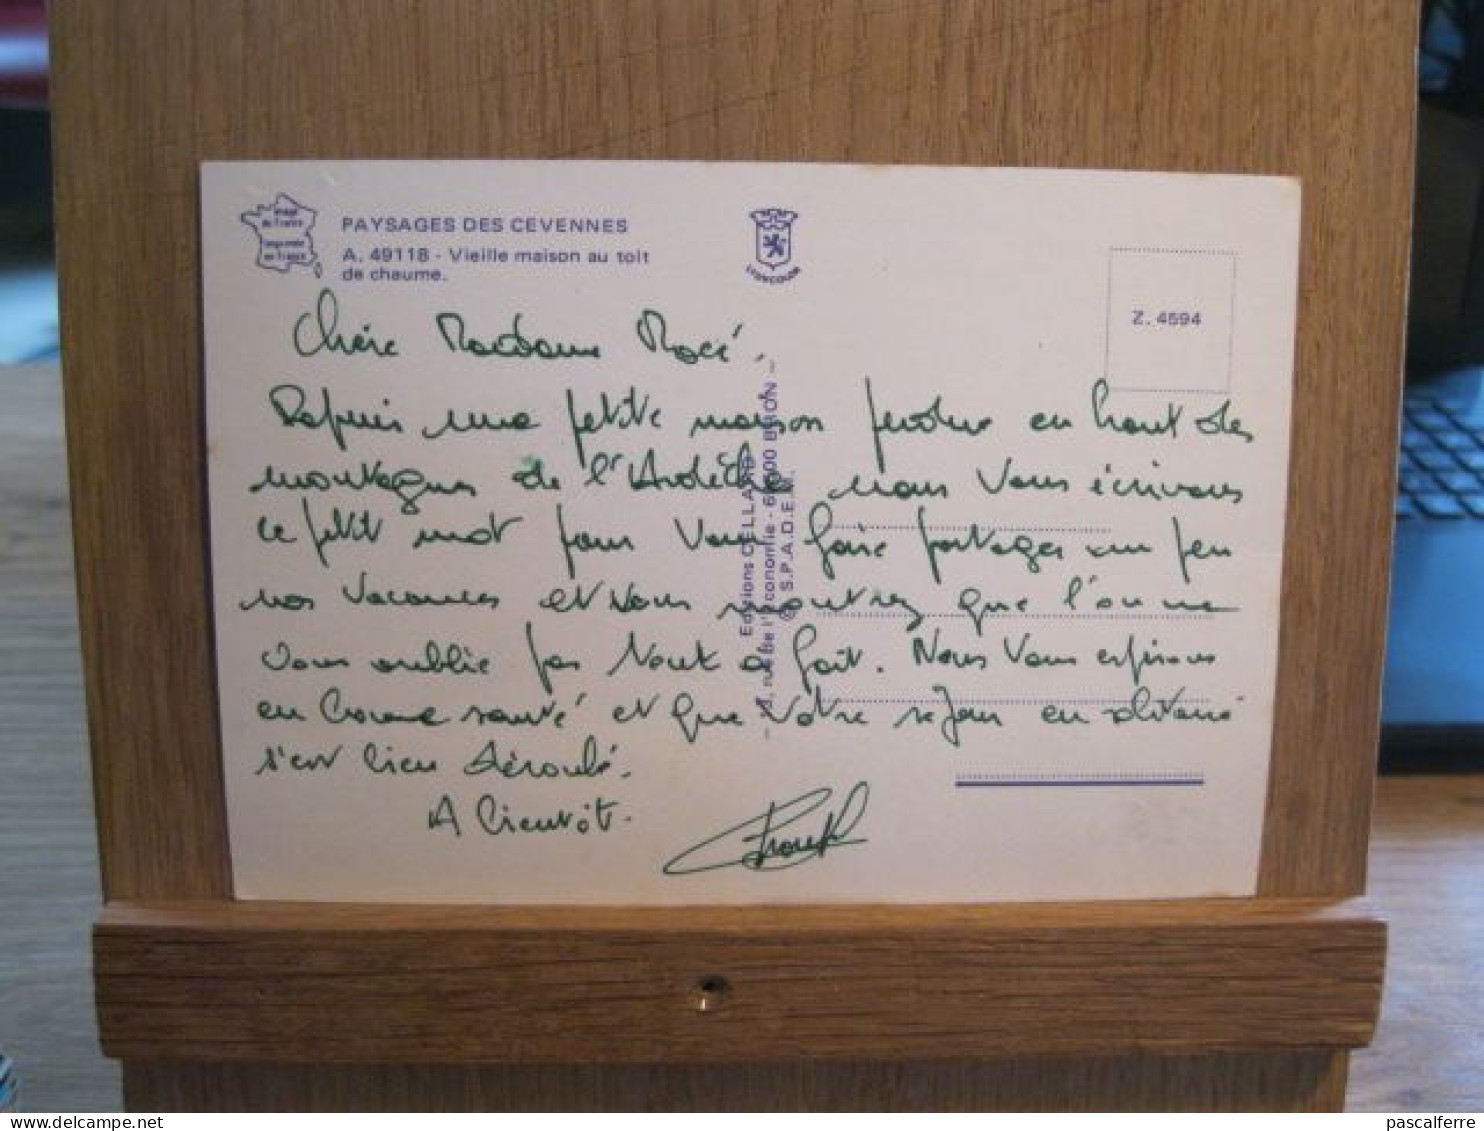 image
de France
imprimée
en France
PAYSAGES DES CEVENNES
A. 49118 - Vieille maison au toit
de chaume.
LYONCOLOR
Z. 4594
Chère Madame Macé.
Depuis une petite maison perdue en haut des
montagnes de l'Ardèche nous vous écrivons
ce petit mot pour vous faire partager un peu
nos vacances et vous montrez que l'on ne
vous oublie pas tout a fait. Nous vous espérons
en bonne santé et que votre séjour en
s'est bien déroulé.
A bientôt.
Editions CELLARD
rue de l'Economie - 69500 BRON -
© S.P.A.D.E.M.
pascalferre